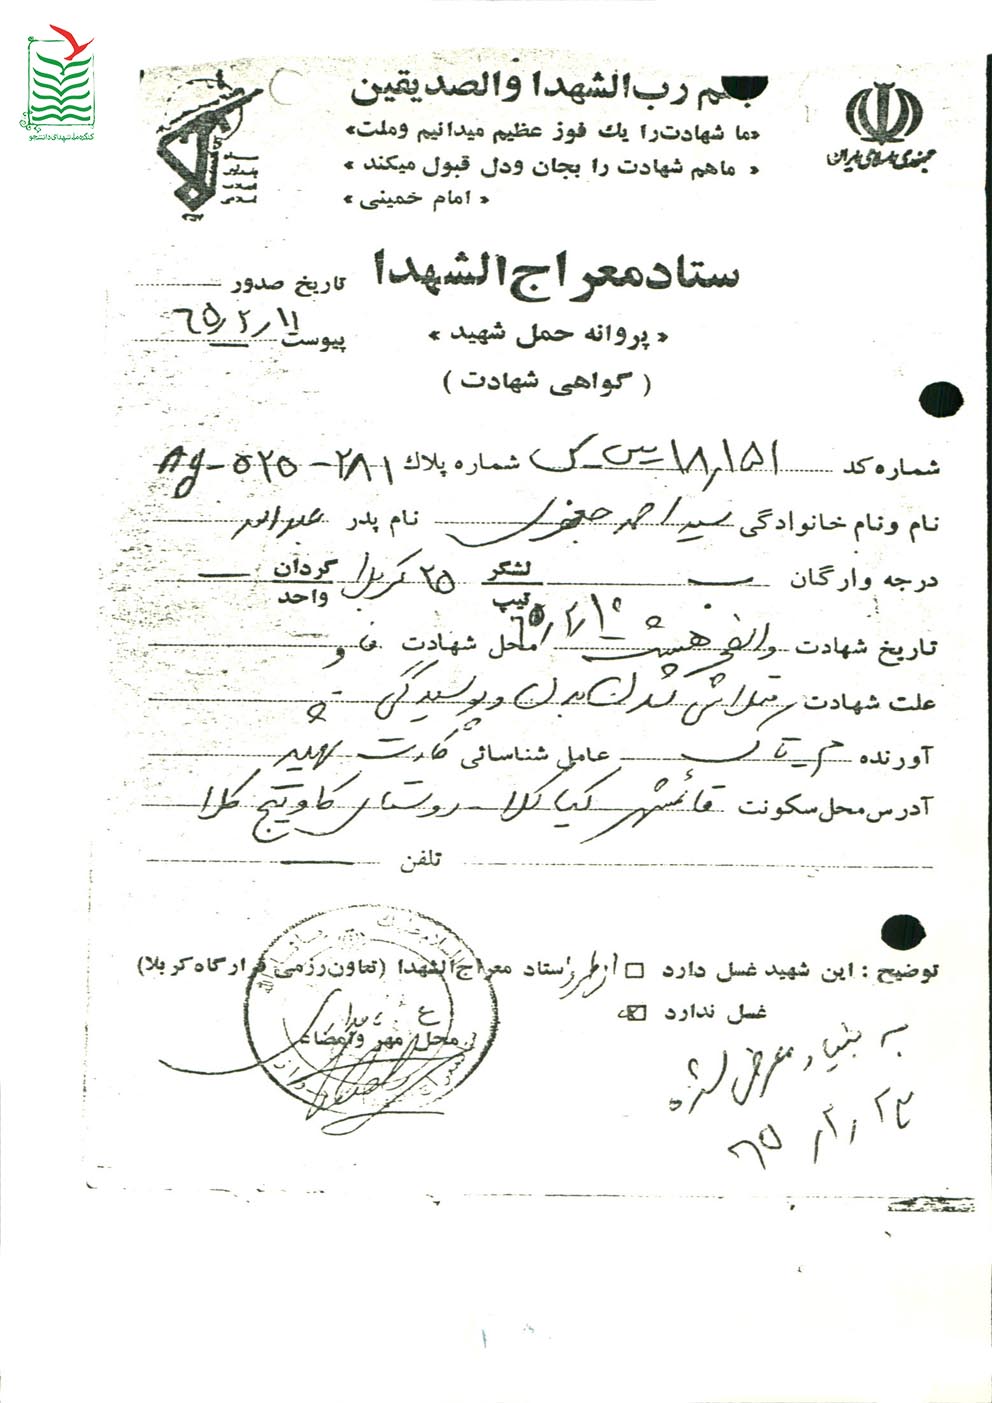 کنگره ملی شهدای دانشجو
بسم رب الشهدا والصدیقین
«ما شهادت را یك فوز عظیم میدانیم وملت»
« ماهم شهادت را بجان ودل قبول میکند »
« امام خمینی »
جمهوری اسلامی ایران
سپاه پاسداران انقلاب اسلامی
ستاد معراج الشهدا
تاریخ صدور
۶۵/۲/۱۱
پیوست —
« پروانه حمل شهید »
( گواهی شهادت )
شماره کد ۱۸٫۱۵۱ شماره پلاك Ag-۵۲۵-۲۸۱
نام ونام خانوادگی سید احمد جعفری نام پدر عبداله
درجه وارگان — لشگر تیپ ۲۵ کربلا گردان واحد —
تاریخ شهادت والفجر هشت محل شهادت فاو
علت شهادت متلاشی شدن بدن و پوسیدگی
آورنده عامل شناسائی کارت
آدرس محل سکونت قائمشهر کیاکلا - روستای کاویج کلا
تلفن —
توضیح : این شهید غسل دارد □ از طرف ستاد معراج الشهدا (تعاون رزمی قرارگاه کربلا)
غسل ندارد ☑
محل مهر وامضاء
به بنیاد معرفی شده